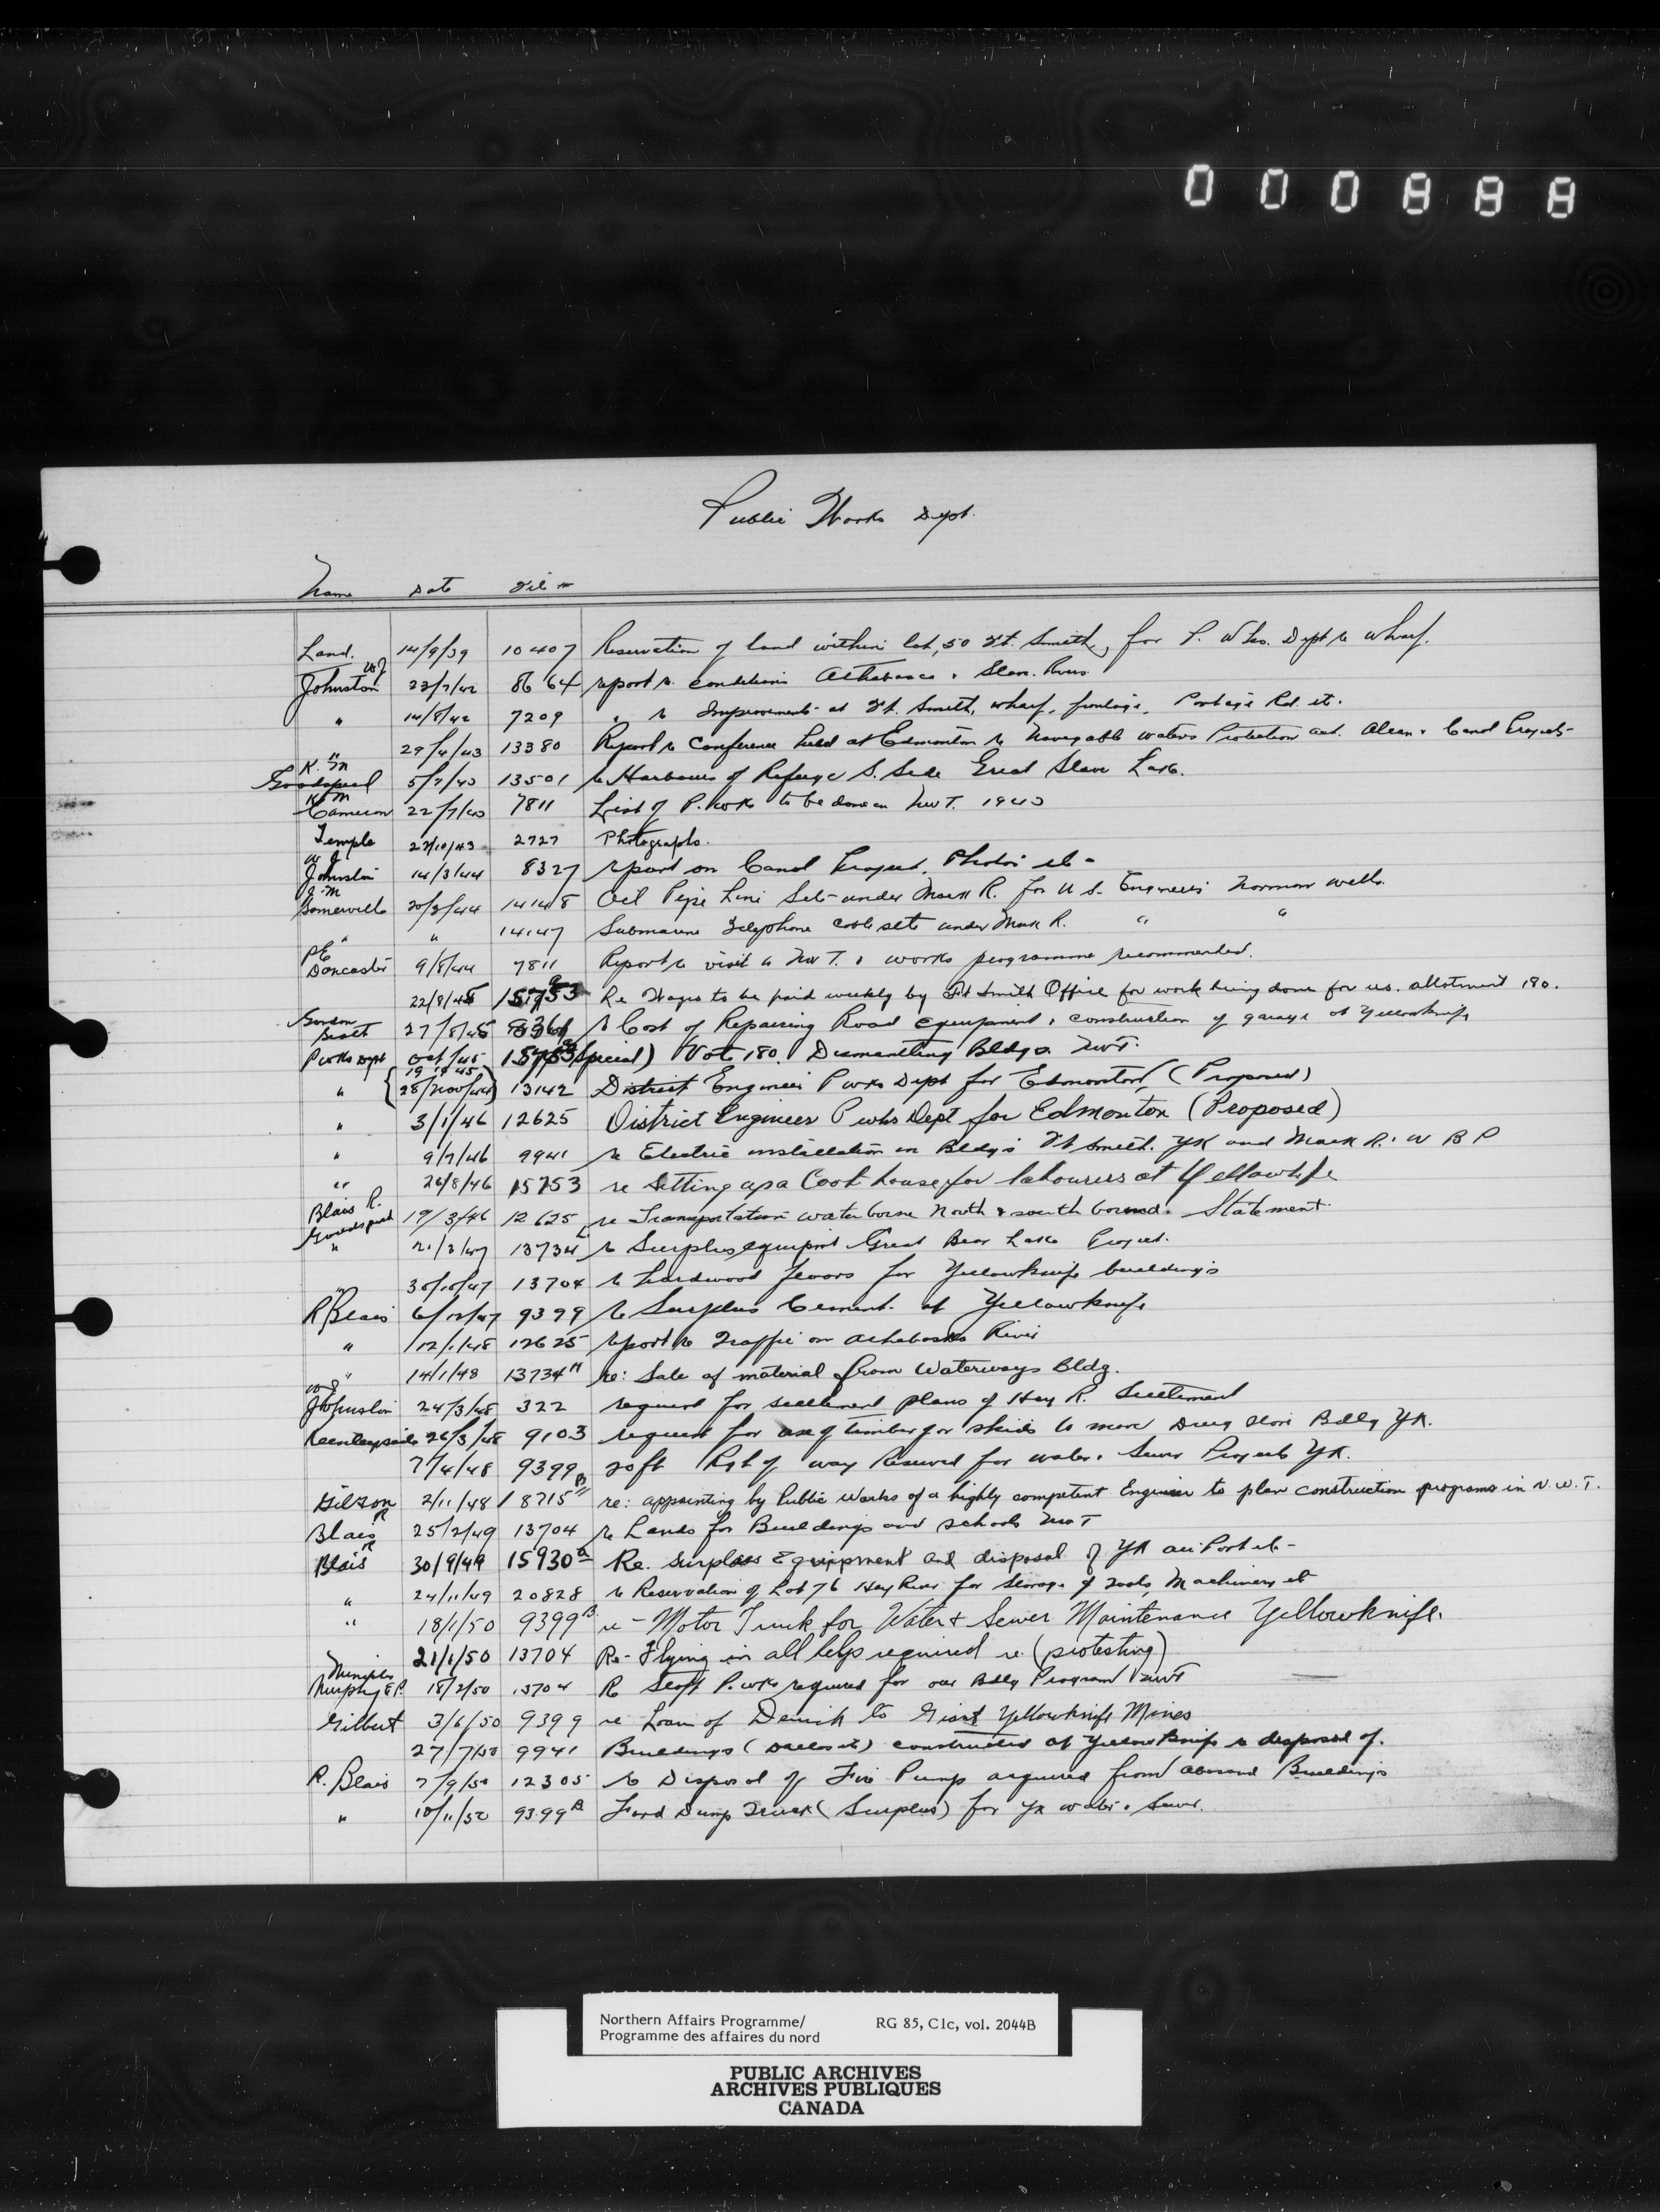 000888
Public Works Dept.
Name Date File #
Land. 14/9/39 10407 Reservation of land within lot, 50 Ft. Smith, for P. Wks. Dept re wharf.
WJ Johnston 23/7/42 8664 report re. conditions Athabasca & Slave Rivers
" 14/8/42 7209 " re Improvements at Ft. Smith, wharf, Portage Rd. etc.
" 29/4/43 13380 Report re Conference held at Edmonton re Navigable waters Protection act. Alcan & Canol Projects
K. M Goodspeed 5/7/43 13501 re Harbours of Refuge S. Side Great Slave Lake.
K M Cameron 22/7/43 7811 List of P. wks to be done in NWT. 1943
Temple 27/10/43 2727 Photographs.
W J Johnston 14/3/44 8327 report on Canol Project, Photos etc-
Somerville 20/3/44 14148 Oil Pipe Line Sets under Mack R. for U S. Engineers Norman wells.
" " 14147 Submarine Telephone cable sets under Mack R. " "
PE Doncaster 9/8/44 7811 Report re visit to NWT. & works programme recommended.
22/8/45 15753 Re Wages to be paid weekly by Ft Smith Office for work being done for us. allotment 180.
27/8/45 re Cost of Repairing Road equipment & construction of garage at Yellowknife
P wks Dept Oct/45 (Special) Vote 180. Dismantling Bldgs. NWT.
" 28/Nov/44 13142 District Engineer P wks Dept for Edmonton (Proposed)
" 3/1/46 12625 District Engineer P wks Dept for Edmonton (Proposed)
" 9/7/46 9941 re Electric installation in Bldgs Ft Smith. YK and Mack R. & W B P
" 26/8/46 15753 re Setting up a Cook house for labourers at Yellowknife
Blais R. 19/3/46 12625 re Transportation waterborne North & south bound. Statement.
" 21/3/47 13734 re Surplus equipmt Great Bear Lake Project.
" 30/10/47 13704 re hardwood floors for Yellowknife buildings
R Blais 6/12/47 9399 re Surplus Cement at Yellowknife
" 12/1/48 12625 report re Traffic on Athabaska River
" 14/1/48 13734 re: Sale of material from Waterways Bldg.
W J Johnston 24/3/48 322 request for settlement plans of Hay R. Settlement
26/3/48 9103 request for use of timber for skids to move Drug Store Bldg YK.
7/4/48 9399B 20ft Rgt of way Reserved for water & Sewer Project YK.
Gilson 2/11/48 18715 re: appointing by Public Works of a highly competent Engineer to plan construction programs in N.W.T.
Blais R 25/2/49 13704 re Lands for Buildings and schools NWT
Blais R 30/9/49 15930a Re. Surplus Equipment and disposal of YK airport etc-
" 24/11/49 20828 re Reservation of Lot 76 Hay River for Storage of Tools, Machinery etc
" 18/1/50 9399B re- Motor Truck for Water & Sewer Maintenance Yellowknife.
21/1/50 13704 Re- Flying in all help required re (protesting)
Murphy 18/2/50 13704 Re Staff P. wks required for our Bldg Program NWT
Gilbert 3/6/50 9399 re Loan of Derrick to Giant Yellowknife Mines
27/7/50 9941 Buildings constructed at Yellowknife re disposal of.
R. Blais 7/9/50 12305 re Disposal of Fire Pump acquired from Buildings
" 18/11/50 9399B Ford Dump Truck (Surplus) for YK water & Sewer.
Northern Affairs Programme/ RG 85, C1c, vol. 2044B
Programme des affaires du nord
PUBLIC ARCHIVES
ARCHIVES PUBLIQUES
CANADA